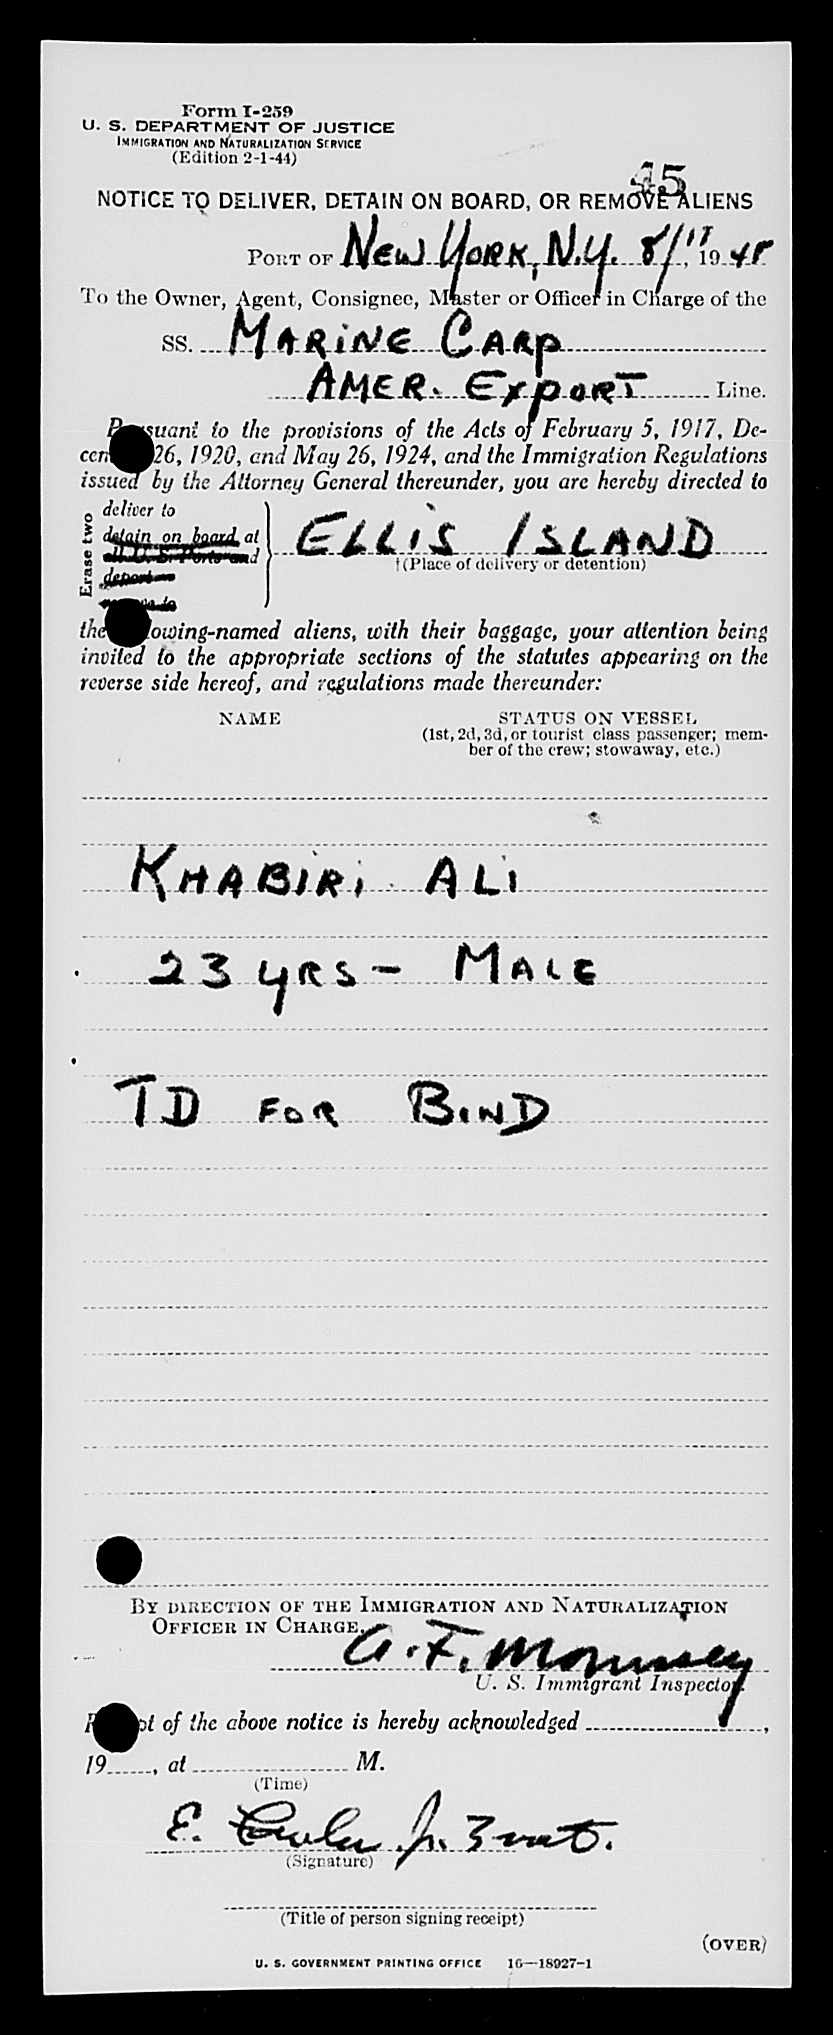 Form I-259
U. S. DEPARTMENT OF JUSTICE
IMMIGRATION AND NATURALIZATION SERVICE
(Edition 2-1-44)
45
NOTICE TO DELIVER, DETAIN ON BOARD, OR REMOVE ALIENS
PORT OF NEW YORK, N.Y. 8/17, 1948
To the Owner, Agent, Consignee, Master or Officer in Charge of the
SS. MARINE CARP
AMER. EXPORT Line.
Pursuant to the provisions of the Acts of February 5, 1917, De-
cem 26, 1920, and May 26, 1924, and the Immigration Regulations
issued by the Attorney General thereunder, you are hereby directed to
Erase two
deliver to
detain on board at
all U. S. Ports and
deport
ELLIS ISLAND
†(Place of delivery or detention)
the owing-named aliens, with their baggage, your attention being
invited to the appropriate sections of the statutes appearing on the
reverse side hereof, and regulations made thereunder:
NAME STATUS ON VESSEL
(1st, 2d, 3d, or tourist class passenger; mem-
ber of the crew; stowaway, etc.)
KHABIRI ALI
23 YRS - MALE
TD FOR BIND
BY DIRECTION OF THE IMMIGRATION AND NATURALIZATION
OFFICER IN CHARGE.
A. F. Morrissey
U. S. Immigrant Inspector.
pt of the above notice is hereby acknowledged ,
19 , at M.
(Time)
E. Jr.
(Signature)
(Title of person signing receipt)
(OVER)
U. S. GOVERNMENT PRINTING OFFICE 16—18927-1